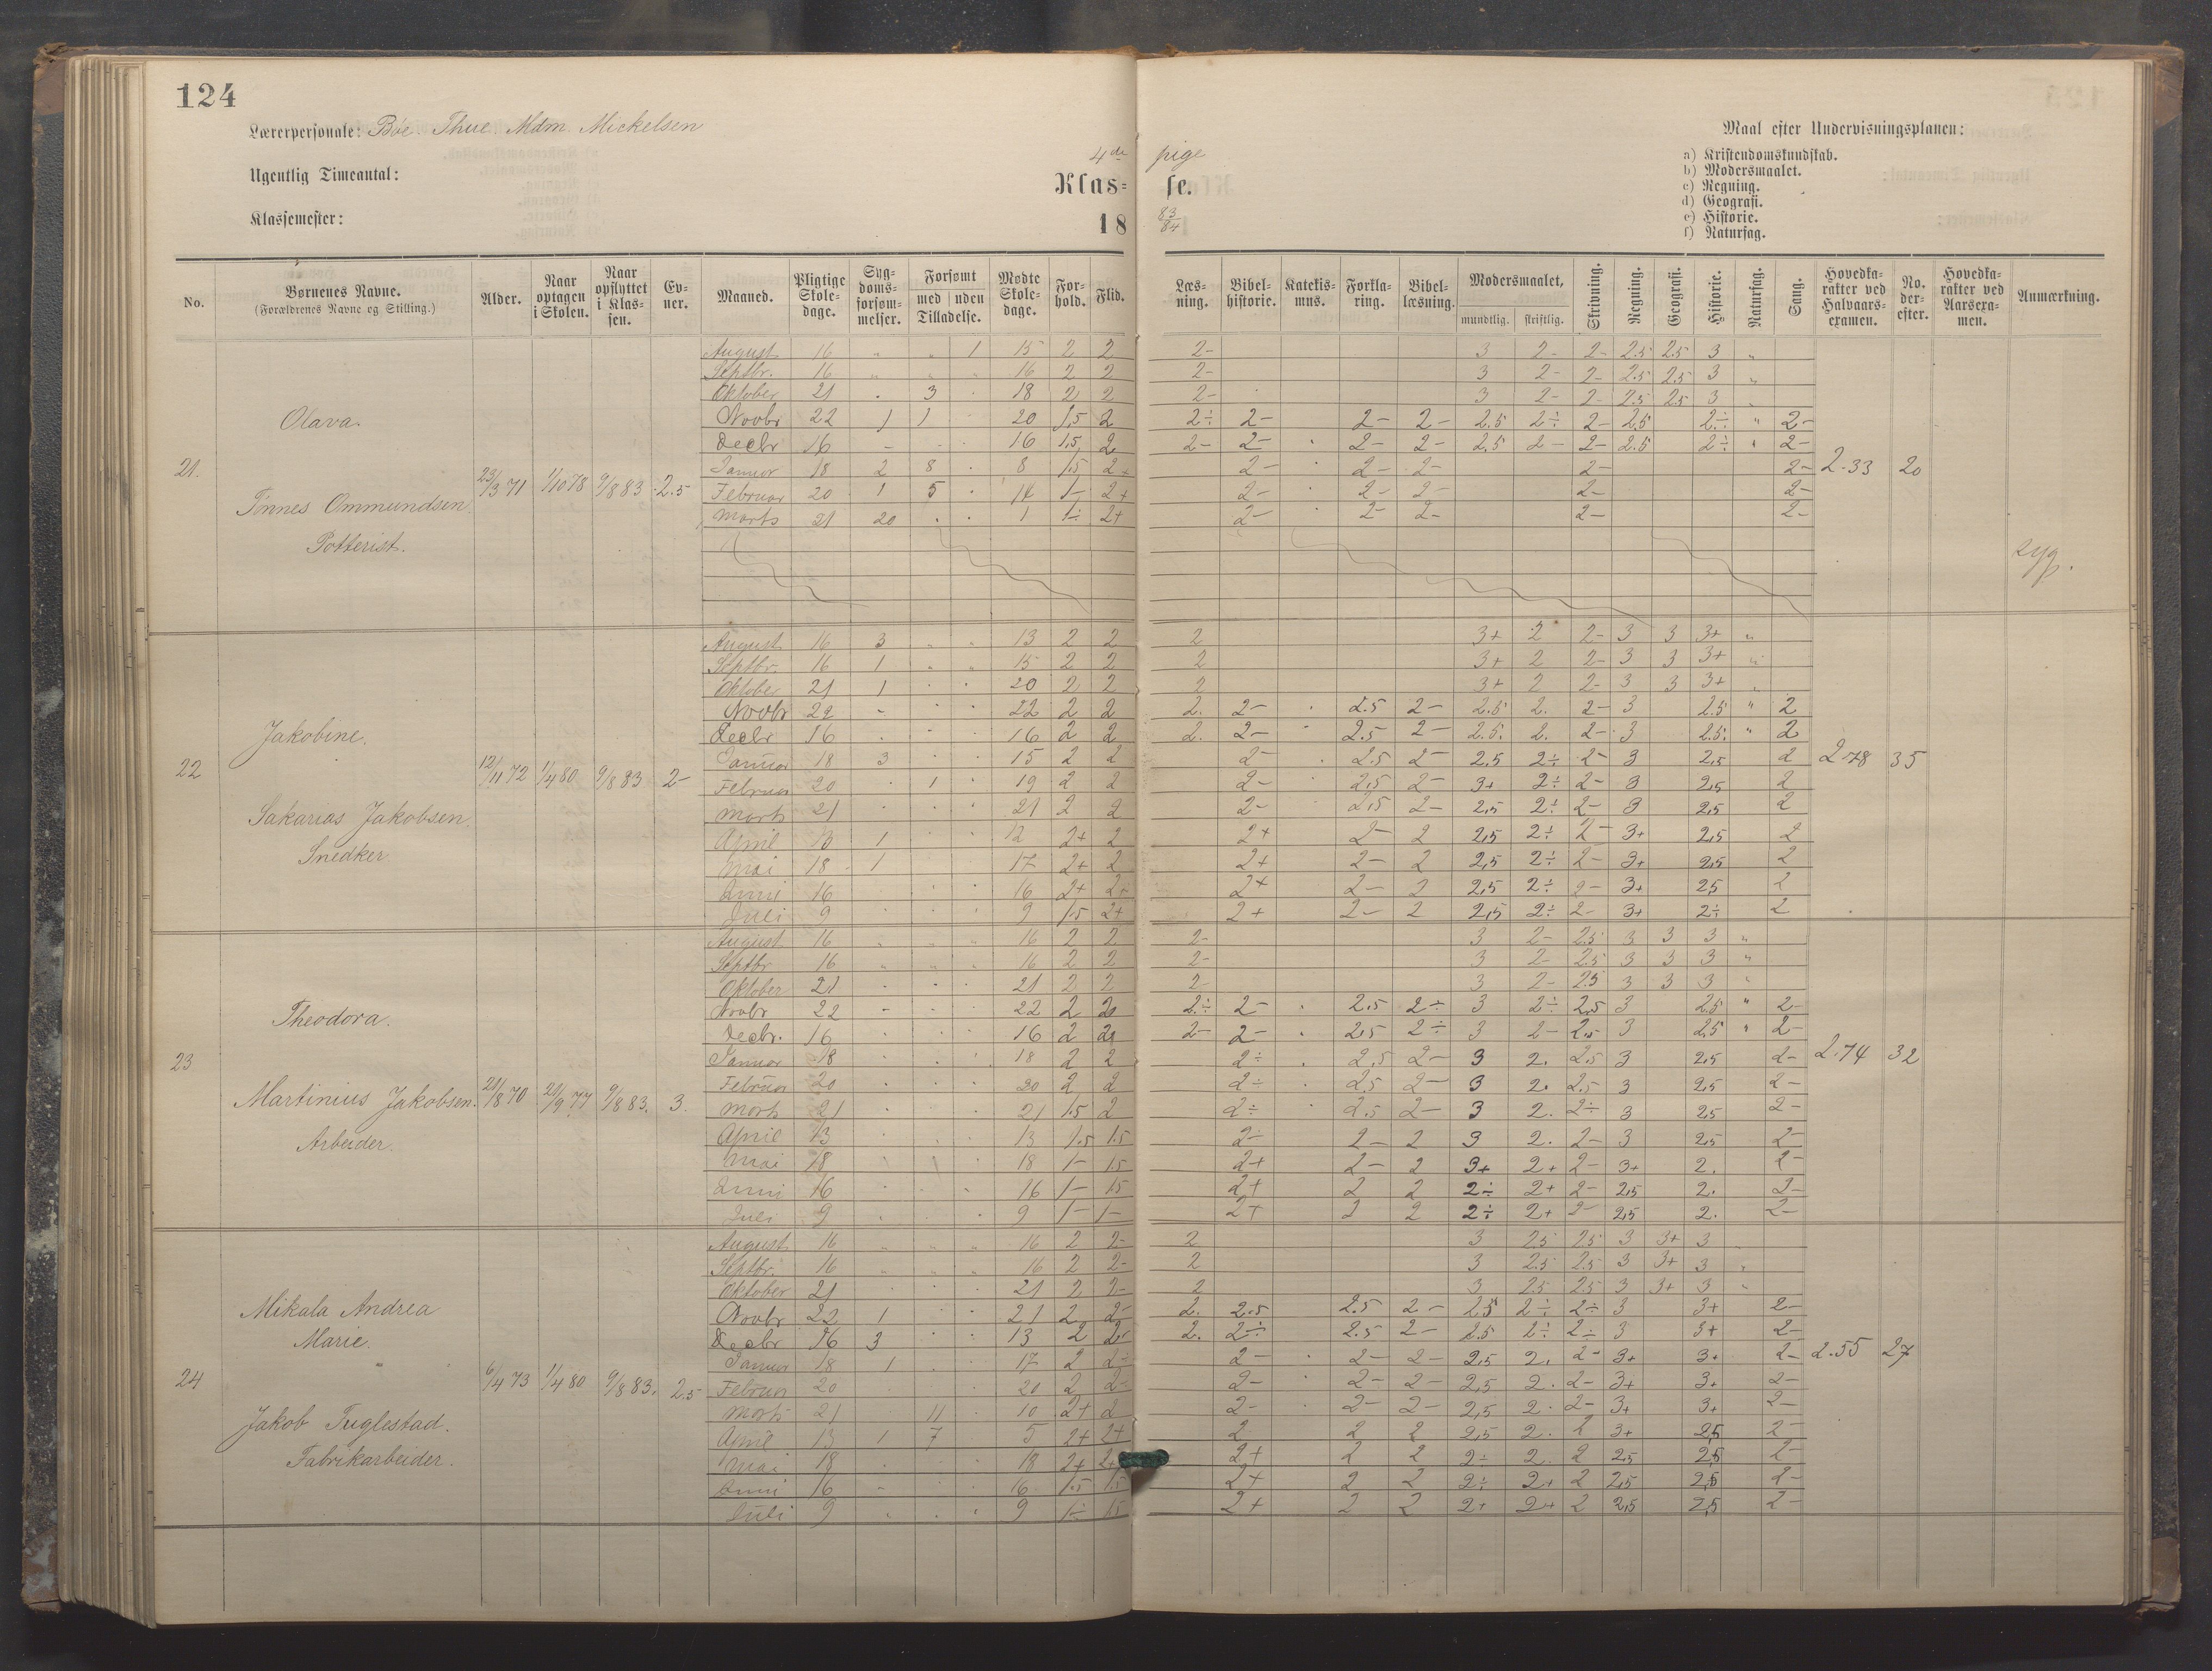 124
Lærerpersonale: Bøe Thue Mdm. Mickelsen
Ugentlig Timeantal:
Klassemester:
4de pige
Klas- se.
18 83/84
Maal efter Undervisningsplanen:
a) Kristendomskundskab.
b) Modersmaalet.
c) Regning.
d) Geografi.
e) Historie.
f) Naturfag.
No. Børnenes Navne. (Forældrenes Navne og Stilling.) Alder. Naar optagen i Skolen. Naar opflyttet i Klassen. Evner. Maaned. Pligtige Skoledage. Sygdomsforsømmelser. Forsømt med uden Tilladelse. Mødte Skoledage. Forhold. Flid. Læsning. Bibelhistorie. Katekismus. Forklaring. Bibellæsning. Modersmaalet, mundtlig. skriftlig. Skrivning. Regning. Geografi. Historie. Naturfag. Sang. Hovedkarakter ved Halvaarsexamen. No. derefter. Hovedkarakter ved Aarsexamen. Anmærkning.
21. Olava.
Tönnes Ommundsen
Potterist.
23/3 71 1/10 78 9/8 83 2.5
August 16 " " 1 15 2 2 2- 3 2- 2- 2.5 2.5 3 "
Septbr. 16 " " " 16 2 2 2- 3 2- 2- 2.5 2.5 3 "
Oktober 21 . 3 . 18 2 2 2- 3 2- 2- 2.5 2.5 3
Novbr 22 1 1 20 1,5 2 2÷ 2- 2- 2- 2.5 2÷ 2- 2.5 2÷ " 2-
Decbr 16 - 16 1,5 2 2- 2- 2- 2- 2.5 2- 2- 2.5 2÷ " 2-
Januar 18 2 8 . 8 1.5 2+ 2- 2- 2- 2- 2-
Februar 20 1 5 . 14 1- 2+ 2- 2- 2- 2- 2-
Marts 21 20 . . 1 1÷ 2+ 2- 2- 2- 2- 2-
2.33 20
syg.
22 Jakobine.
Sakarias Jakobsen.
Snedker
12/11 72 1/4 80 9/8 83 2-
August 16 3 " " 13 2 2 2 3+ 2 2- 3 3 3+ "
Septbr. 16 1 " " 15 2 2 2 3+ 2 2- 3 3 3+ "
Oktober 21 1 . . 20 2 2 2 3+ 2 2- 3 3 3+ "
Novbr 22 - 22 2 2 2. 2- 2.5 2- 2.5 2. 2- 3 2.5 " 2
Decbr 16 . 16 2 2 2. 2- 2.5 2- 2.5. 2. 2- 3 2.5. " 2
Januar 18 3 . . 15 2 2 2- 2.5 2- 2.5 2÷ 2- 3 2,5 2
Februar 20 . 1 . 19 2 2 2- 2,5 2- 3+ 2÷ 2- 3 2,5 2
Marts 21 . . . 21 2 2 2- 2,5 2- 2,5 2÷ 2- 3 2,5 2
April 13 1 12 2+ 2 2+ 2- 2 2,5 2÷ 2- 3+ 2,5 2
Mai 18 1 17 2+ 2 2+ 2- 2 2,5 2÷ 2- 3+ 2,5 2
Juni 16 16 2+ 2+ 2+ 2- 2 2,5 2÷ 2- 3+ 2,5 2
Juli 9 9 1.5 2+ 2+ 2- 2 2,5 2÷ 2- 3+ 2÷ 2
2.78 35
23 Theodora.
Martinius Jakobsen.
Arbeider.
21/8 70 21/9 77 9/8 83. 3.
August 16 " " " 16 2 2 2- 3 2- 2.5 3 3 3 "
Septbr 16 " " " 16 2 2 2- 3 2- 2.5 3 3 3 "
Oktober 21 . . . 21 2 2 2- 3 2- 2.5 3 3 3 "
Novbr 22 - 22 2 2 2÷ 2- 2.5 2÷ 3 2÷ 2.5 3 2.5 " 2-
Decbr. 16 . 16 2 2 2- 2- 2.5 2÷ 3 2- 2.5 3 2.5 " 2-
Januar 18 . . . 18 2 2 2÷ 2,5 2- 3 2. 2.5 3 2,5 2-
Februar 20 . . . 20 2 2 2÷ 2.5 2- 3 2. 2.5 3 2,5 2-
Marts 21 . . . 21 1.5 2 2÷ 2.5 2- 3 2. 2÷ 3 2,5 2-
April 13 . . . 13 1.5 1.5 2- 2- 2 3 2. 2- 3 2,5 2-
Mai 18 . . . 18 1- 1.5 2+ 2- 2 3+ 2+ 2- 3+ 2. 2-
Juni 16 . . . 16 1- 1.5 2+ 2 2 2÷ 2+ 2- 2,5 2. 2-
Juli 9 . . . 9 1- 1- 2+ 2 2 2÷ 2+ 2- 2,5 2. 2-
2.74 32
24 Mikala Andrea
Marie.
Jakob Fuglestad.
Fabrikarbeider.
6/4 73 1/4 80 9/8 83. 2.5
August 16 " " " 16 2 2- 2 3 2.5 2.5 3 3+ 3
Septbr. 16 " " " 16 2 2- 2 3 2.5 2.5 3 3+ 3 "
Oktober 21 . . . 21 2 2- 2 3 2.5 2.5 3 3+ 3 "
Novbr 22 1 21 2 2- 2. 2.5 2.5 2- 2.5 2÷ 2÷ 3 3+ 2-
Decbr 16 3 13 2 2 2. 2÷ 2.5 2- 2.5 2÷ 2÷ 3 3+ 2-
Januar 18 1 . 17 2 2÷ 2- 2- 2- 2,5 2. 2- 3+ 3+ 2-
Februar 20 20 2 2- 2- 2- 2- 2,5 2. 2- 3+ 3+ 2-
Marts 21 11 10 2+ 2 2- 2- 2- 2,5 2. 2- 3+ 3+ 2-
April 13 1 7 5 2+ 2+ 2 2 2 2,5 2. 2 3+ 2,5 2-
Mai 18 . 18 2+ 2+ 2+ 2 2 2÷ 2. 2 2,5 2,5 2-
Juni 16 . 16 1.5 1.5 2+ 2 2 2÷ 2+ 2 2,5 2,5 2-
Juli 9 . 9 1÷ 1.5 2+ 2 2 2+ 2+ 2 2,5 2,5 2-
2.55 27